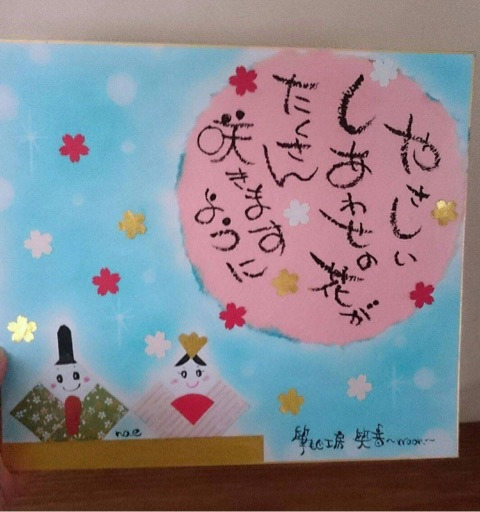 やさしい
しあわせの花が
たくさん
咲きます
ように
nae
筆も工房 笑音~naon~